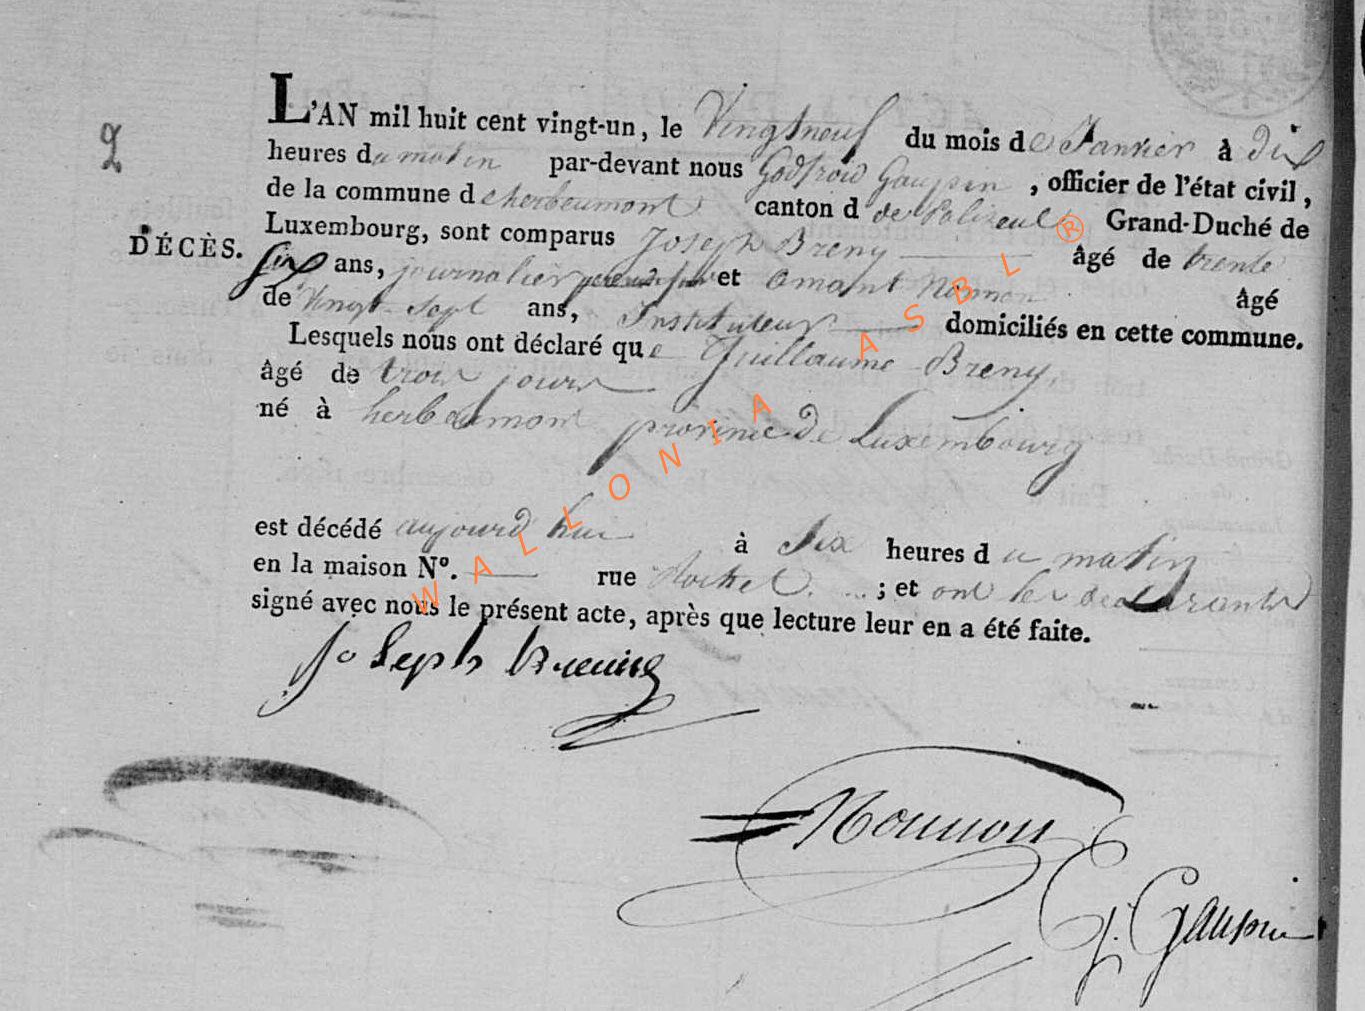 2
L'AN mil huit cent vingt-un, le Vingtneuf du mois de Janvier à dix
heures du matin par-devant nous Godfroid Gaupin, officier de l'état civil,
de la commune d'herbeumont canton d de Palizeul Grand-Duché de
DÉCÈS.
Luxembourg, sont comparus Joseph Breny âgé de trente
six ans, journalier et amant Nonnon âgé
de Vingt-Sept ans, Instituteur domiciliés en cette commune.
Lesquels nous ont déclaré que Guillaume Breny,
âgé de trois jours
né à herbeumont province de Luxembourg
est décédé aujourd'hui à Six heures du matin
en la maison N°. rue ; et ont les déclarants
signé avec nous le présent acte, après que lecture leur en a été faite.
Joseph
Nonnon
G. Gaupin
WALLONIA ASBL ®